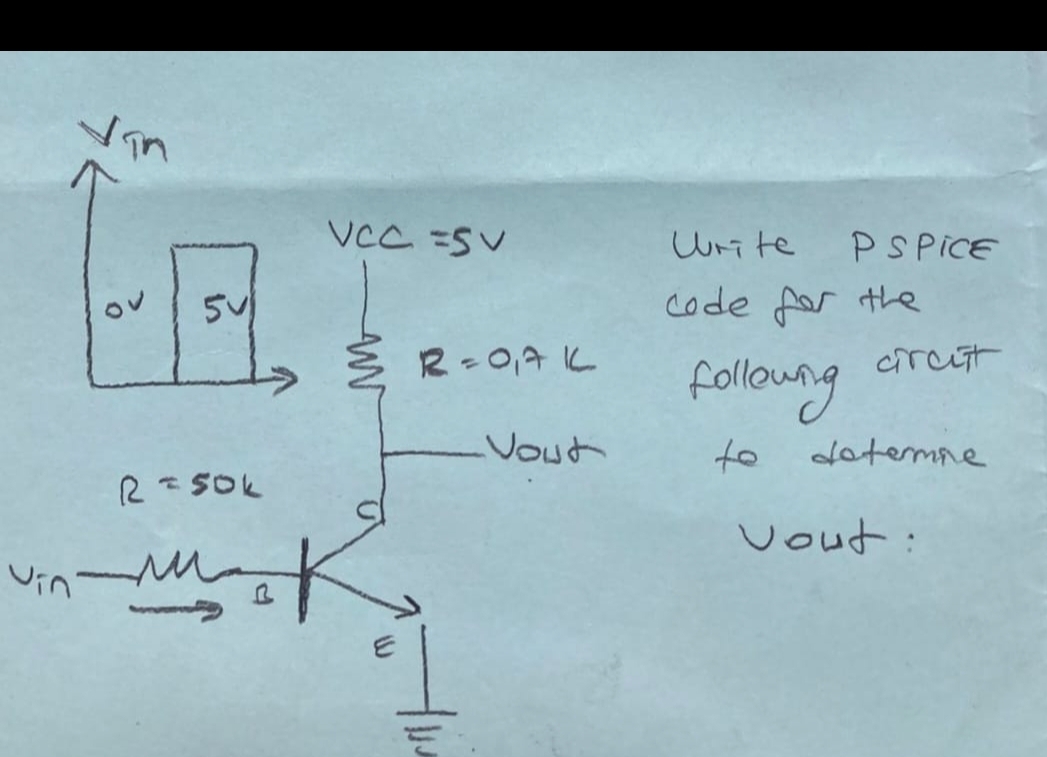 Vin
0V
5V
VCC =5V
R=0,7 K
Vout
R = 50k
C
Vin
B
E
Write PSPiCE
code for the
following circuit
to determine
Vout :